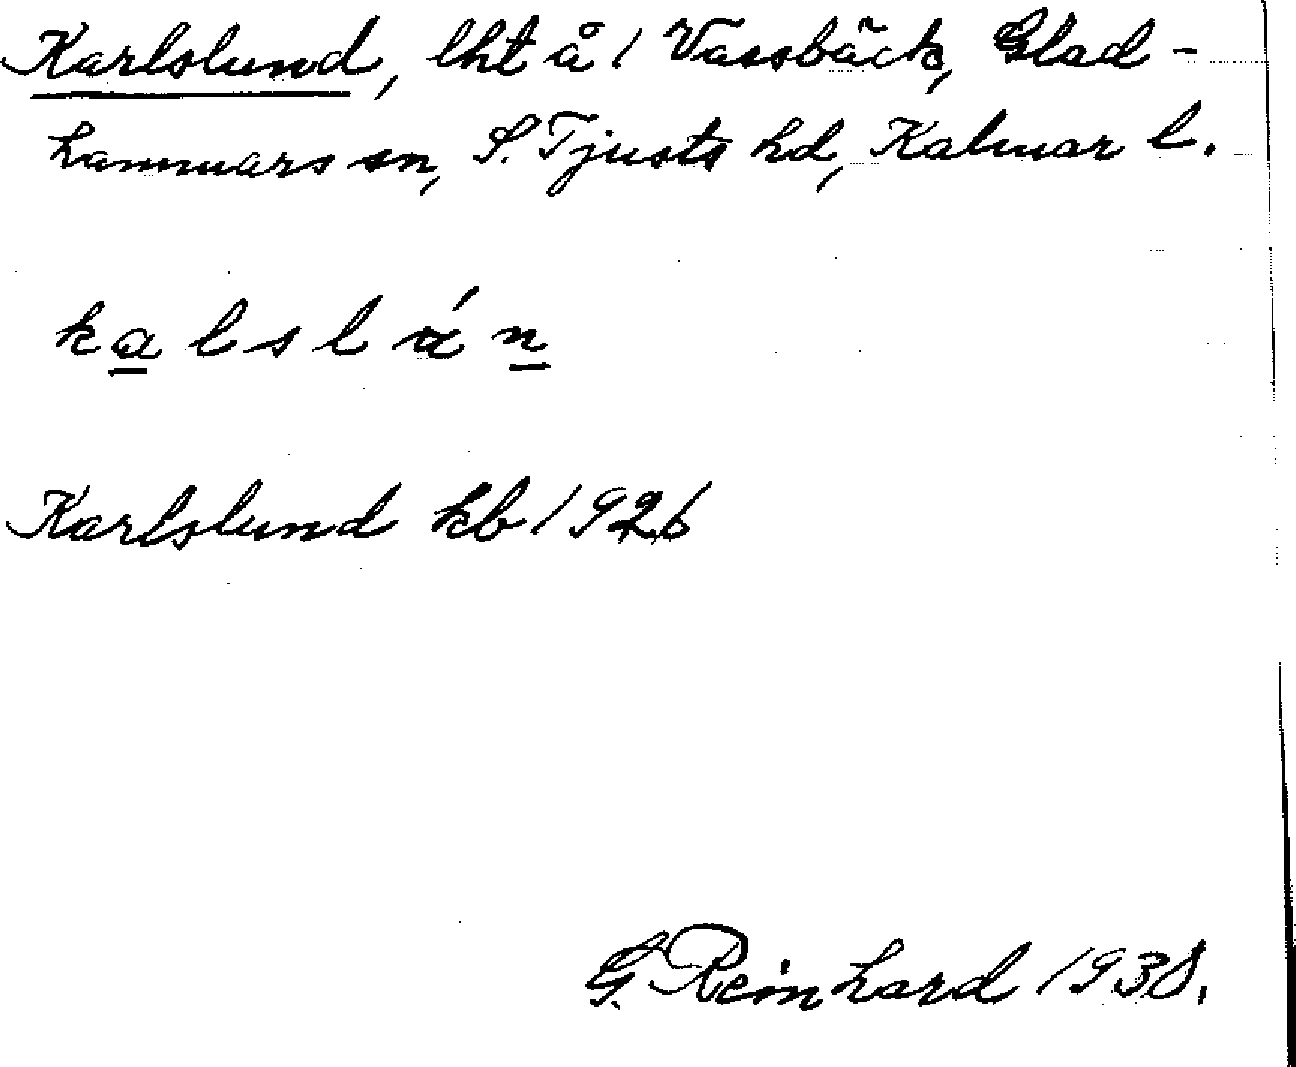 Karlslund, lht å 1 Vassbäck, Glad-
hammars sn, S. Tjusts hd, Kalmar l.
k a l s l ú n
Karlslund kb 1926
G. Reinhard 1938.